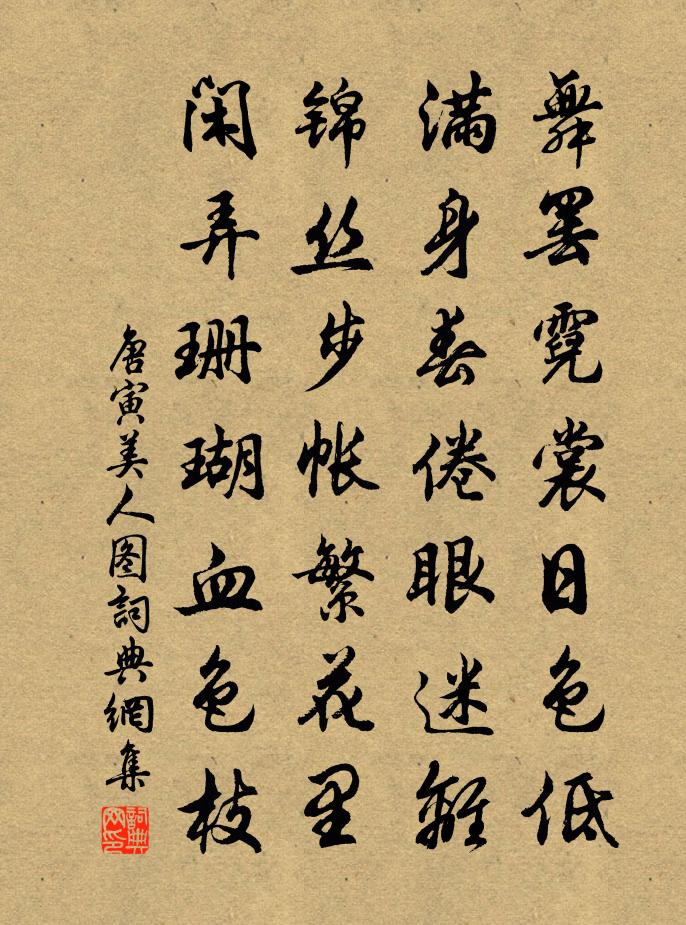 舞罢霓裳日色低
满身春倦眼迷離
锦丝步帐繁花里
闲弄珊瑚血色枝
唐寅美人图詞典網集
詞典网印